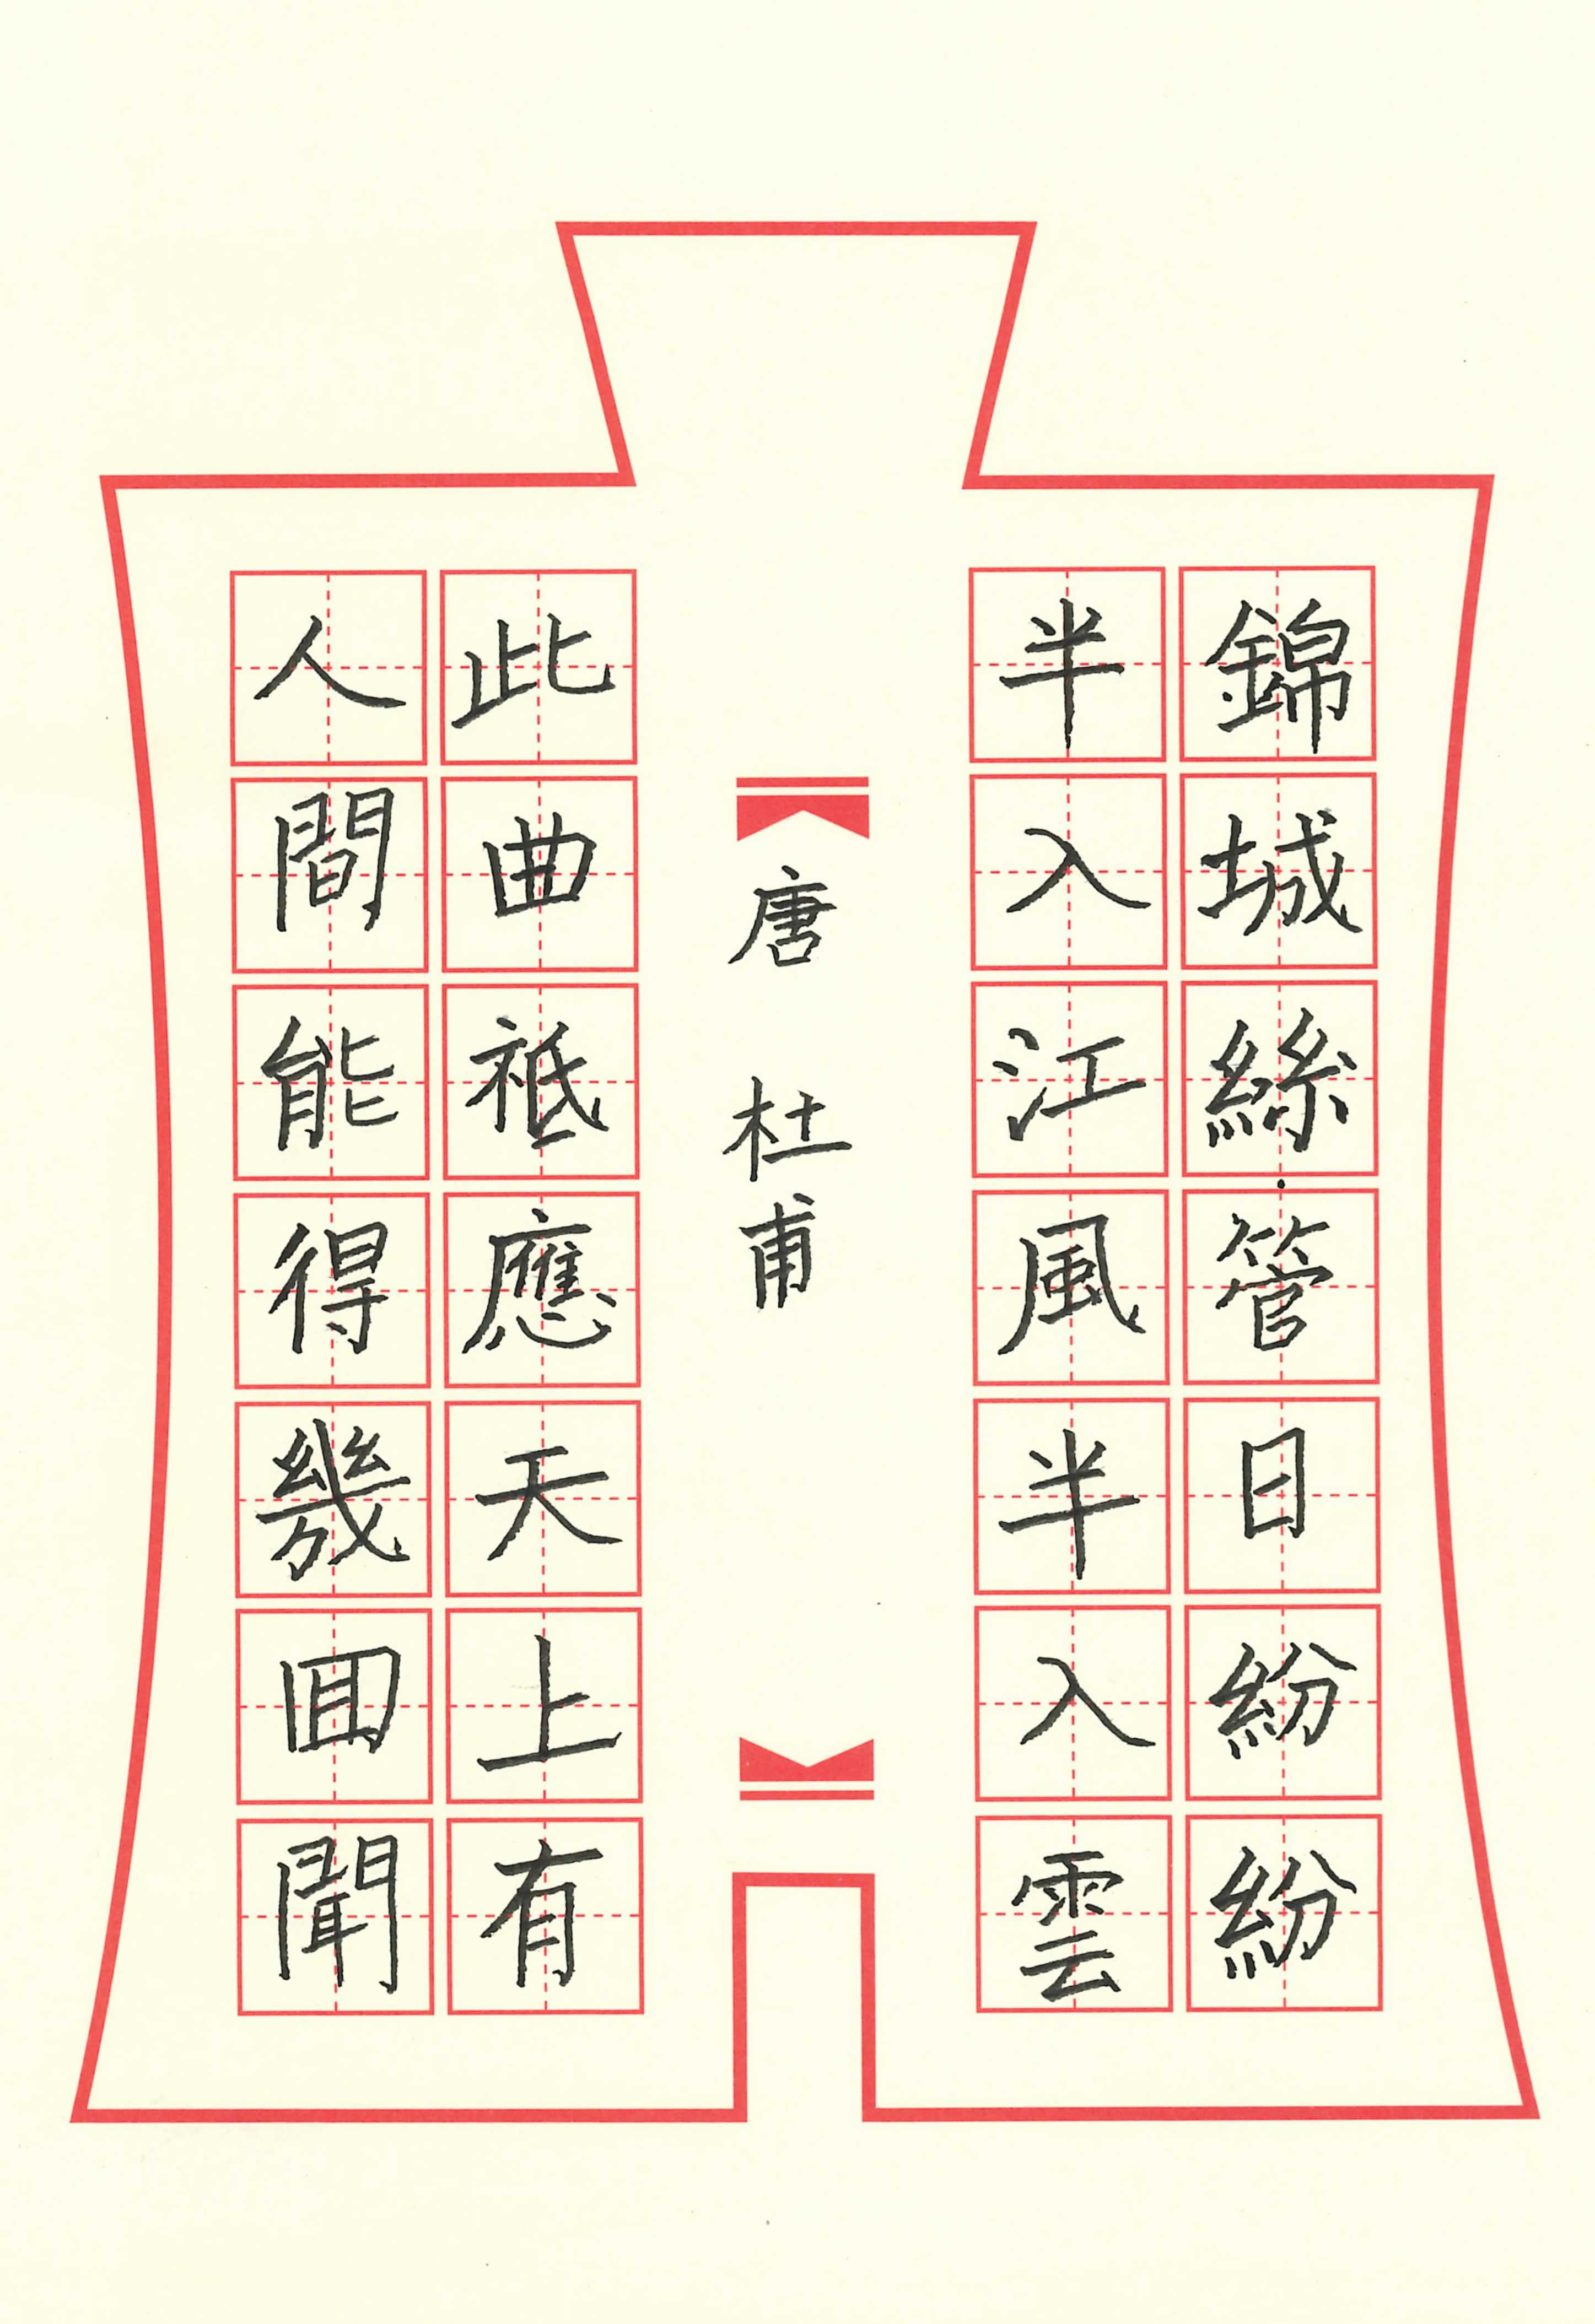 錦城絲管日紛紛
半入江風半入雲
唐 杜甫
此曲祗應天上有
人間能得幾回聞